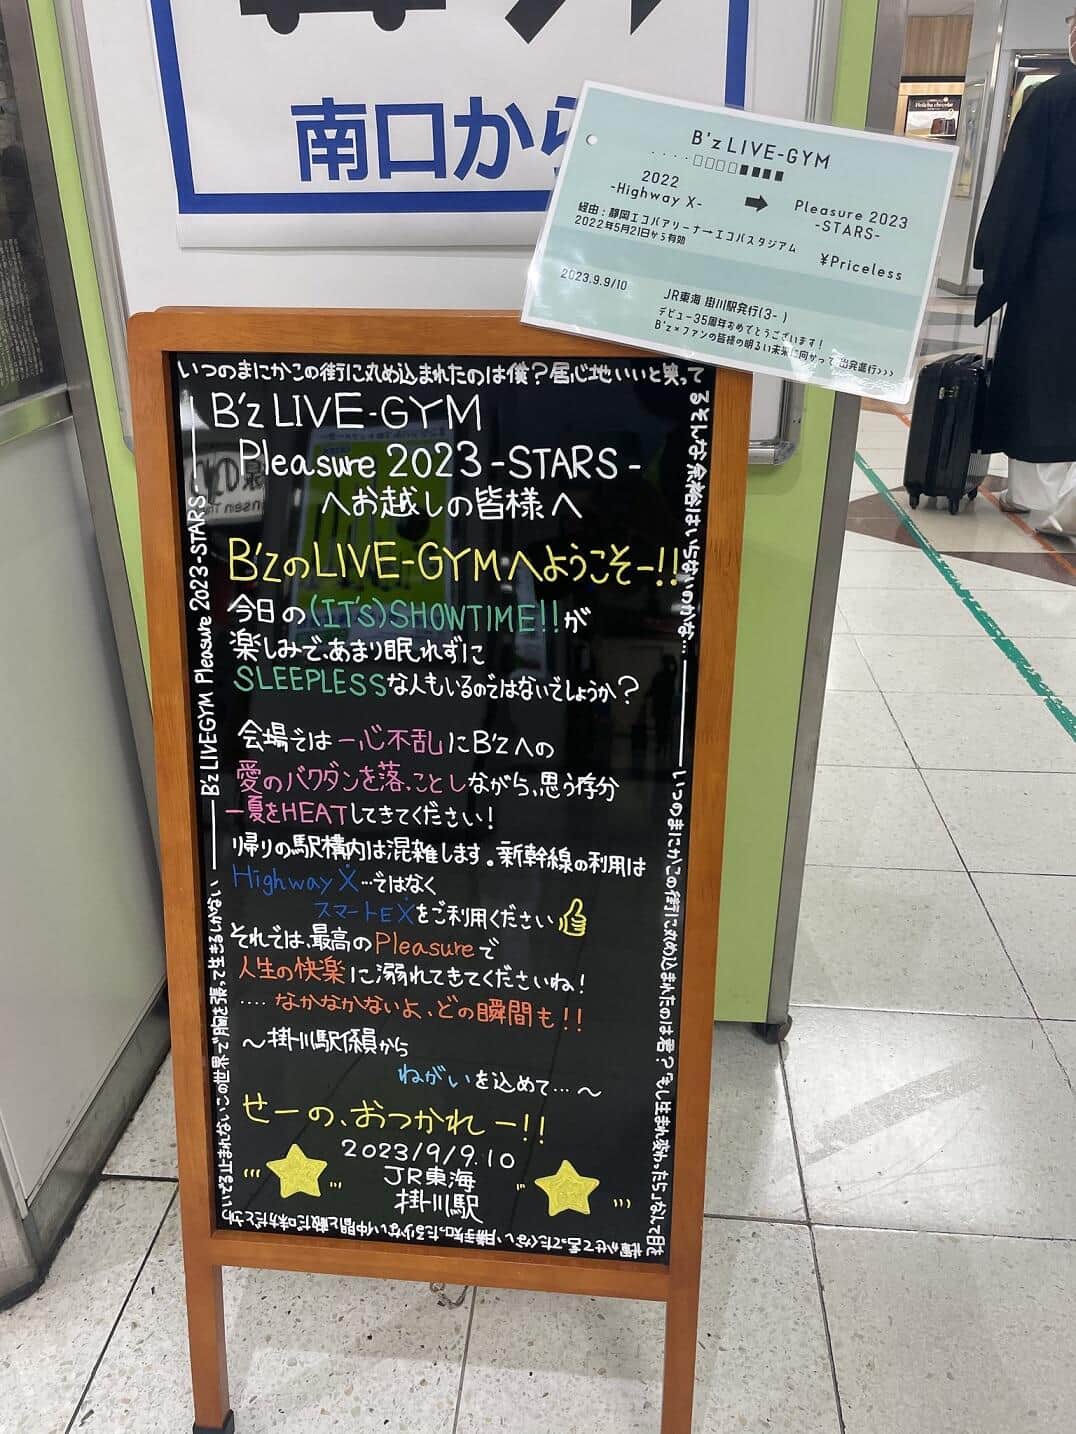 南口から
B'z LIVE-GYM
2022
-Highway X-
Pleasure 2023
-STARS-
経由：静岡エコパアリーナ→エコパスタジアム
2022年5月21日から有効
¥Priceless
2023.9.9/10
JR東海 掛川駅発行(3- )
デビュー35周年おめでとうございます！
B'z×ファンの皆様の明るい未来に向かって 出発進行>>>
いつのまにかこの街に丸め込まれたのは僕？居心地いいと笑って
るそんな余裕はいらないのかな…
B'z LIVE-GYM
Pleasure 2023 -STARS-
へお越しの皆様へ
B'zのLIVE-GYMへようこそー!!
今日の(IT's)SHOWTIME!!が
楽しみで、あまり眠れずに
SLEEPLESSな人もいるのではないでしょうか？
会場では一心不乱にB'zへの
愛のバクダンを落っことしながら、思う存分
一夏をHEATしてきてください！
帰りの駅構内は混雑します。新幹線の利用は
Highway X…ではなく
スマートEXをご利用ください
それでは、最高のPleasureで
人生の快楽に溺れてきてくださいね！
....なかなかないよ、どの瞬間も!!
～掛川駅係員から
ねがいを込めて…～
せーの、おつかれー!!
2023/9/9.10
JR東海
掛川駅
B'z LIVEGYM Pleasure 2023-STARS-
いつのまにかこの街に丸め込まれたのは君？